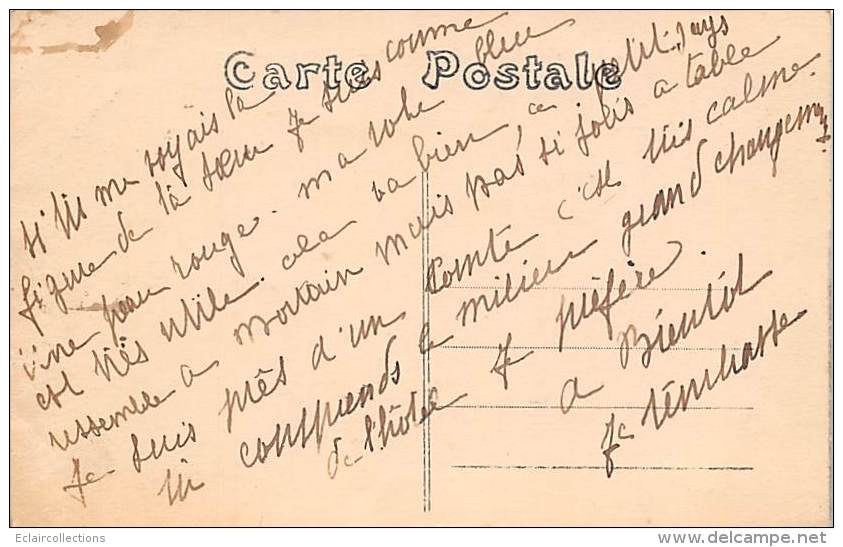 Carte Postale
si tu me voyais la
figure de ta sœur je suis comme
une peau rouge. Ma robe bleue
est très utile. cela va bien, ce petit pays
ressemble a Mortain mais pas si joli a table
Je suis près d'un Comte c'est très calme.
tu comprends ce milieu grand changement
de l'hôtel Je préfère.
a Bientôt
Je t'embrasse
Eclaircollections
www.delcampe.net